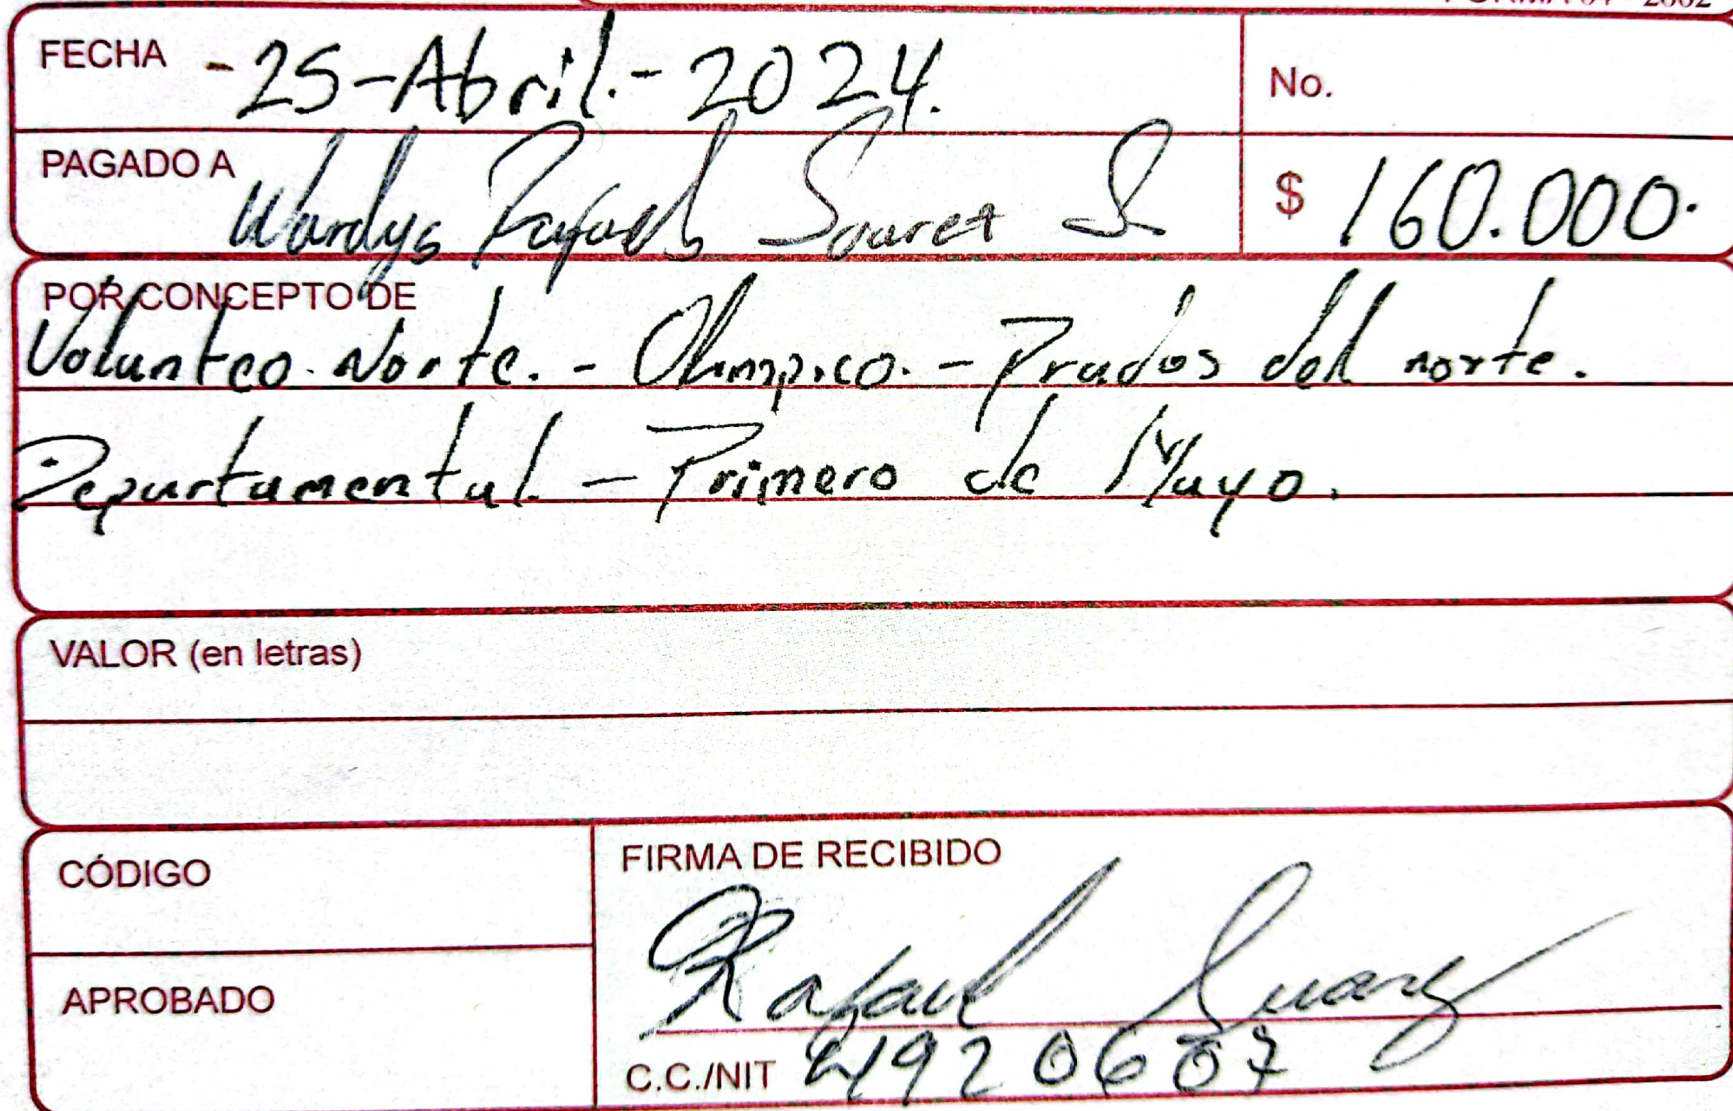 FORMA 01 - 2002
FECHA - 25 - Abril. - 2024.
No.
PAGADO A Wardys Rafael Suarez S
$ 160.000.
POR CONCEPTO DE
Volanteo. Norte. - Olimpico. - Prados del norte.
Departamental. - Primero de Mayo.
VALOR (en letras)
CÓDIGO
FIRMA DE RECIBIDO
Rafael Suarez
APROBADO
C.C./NIT 4920607